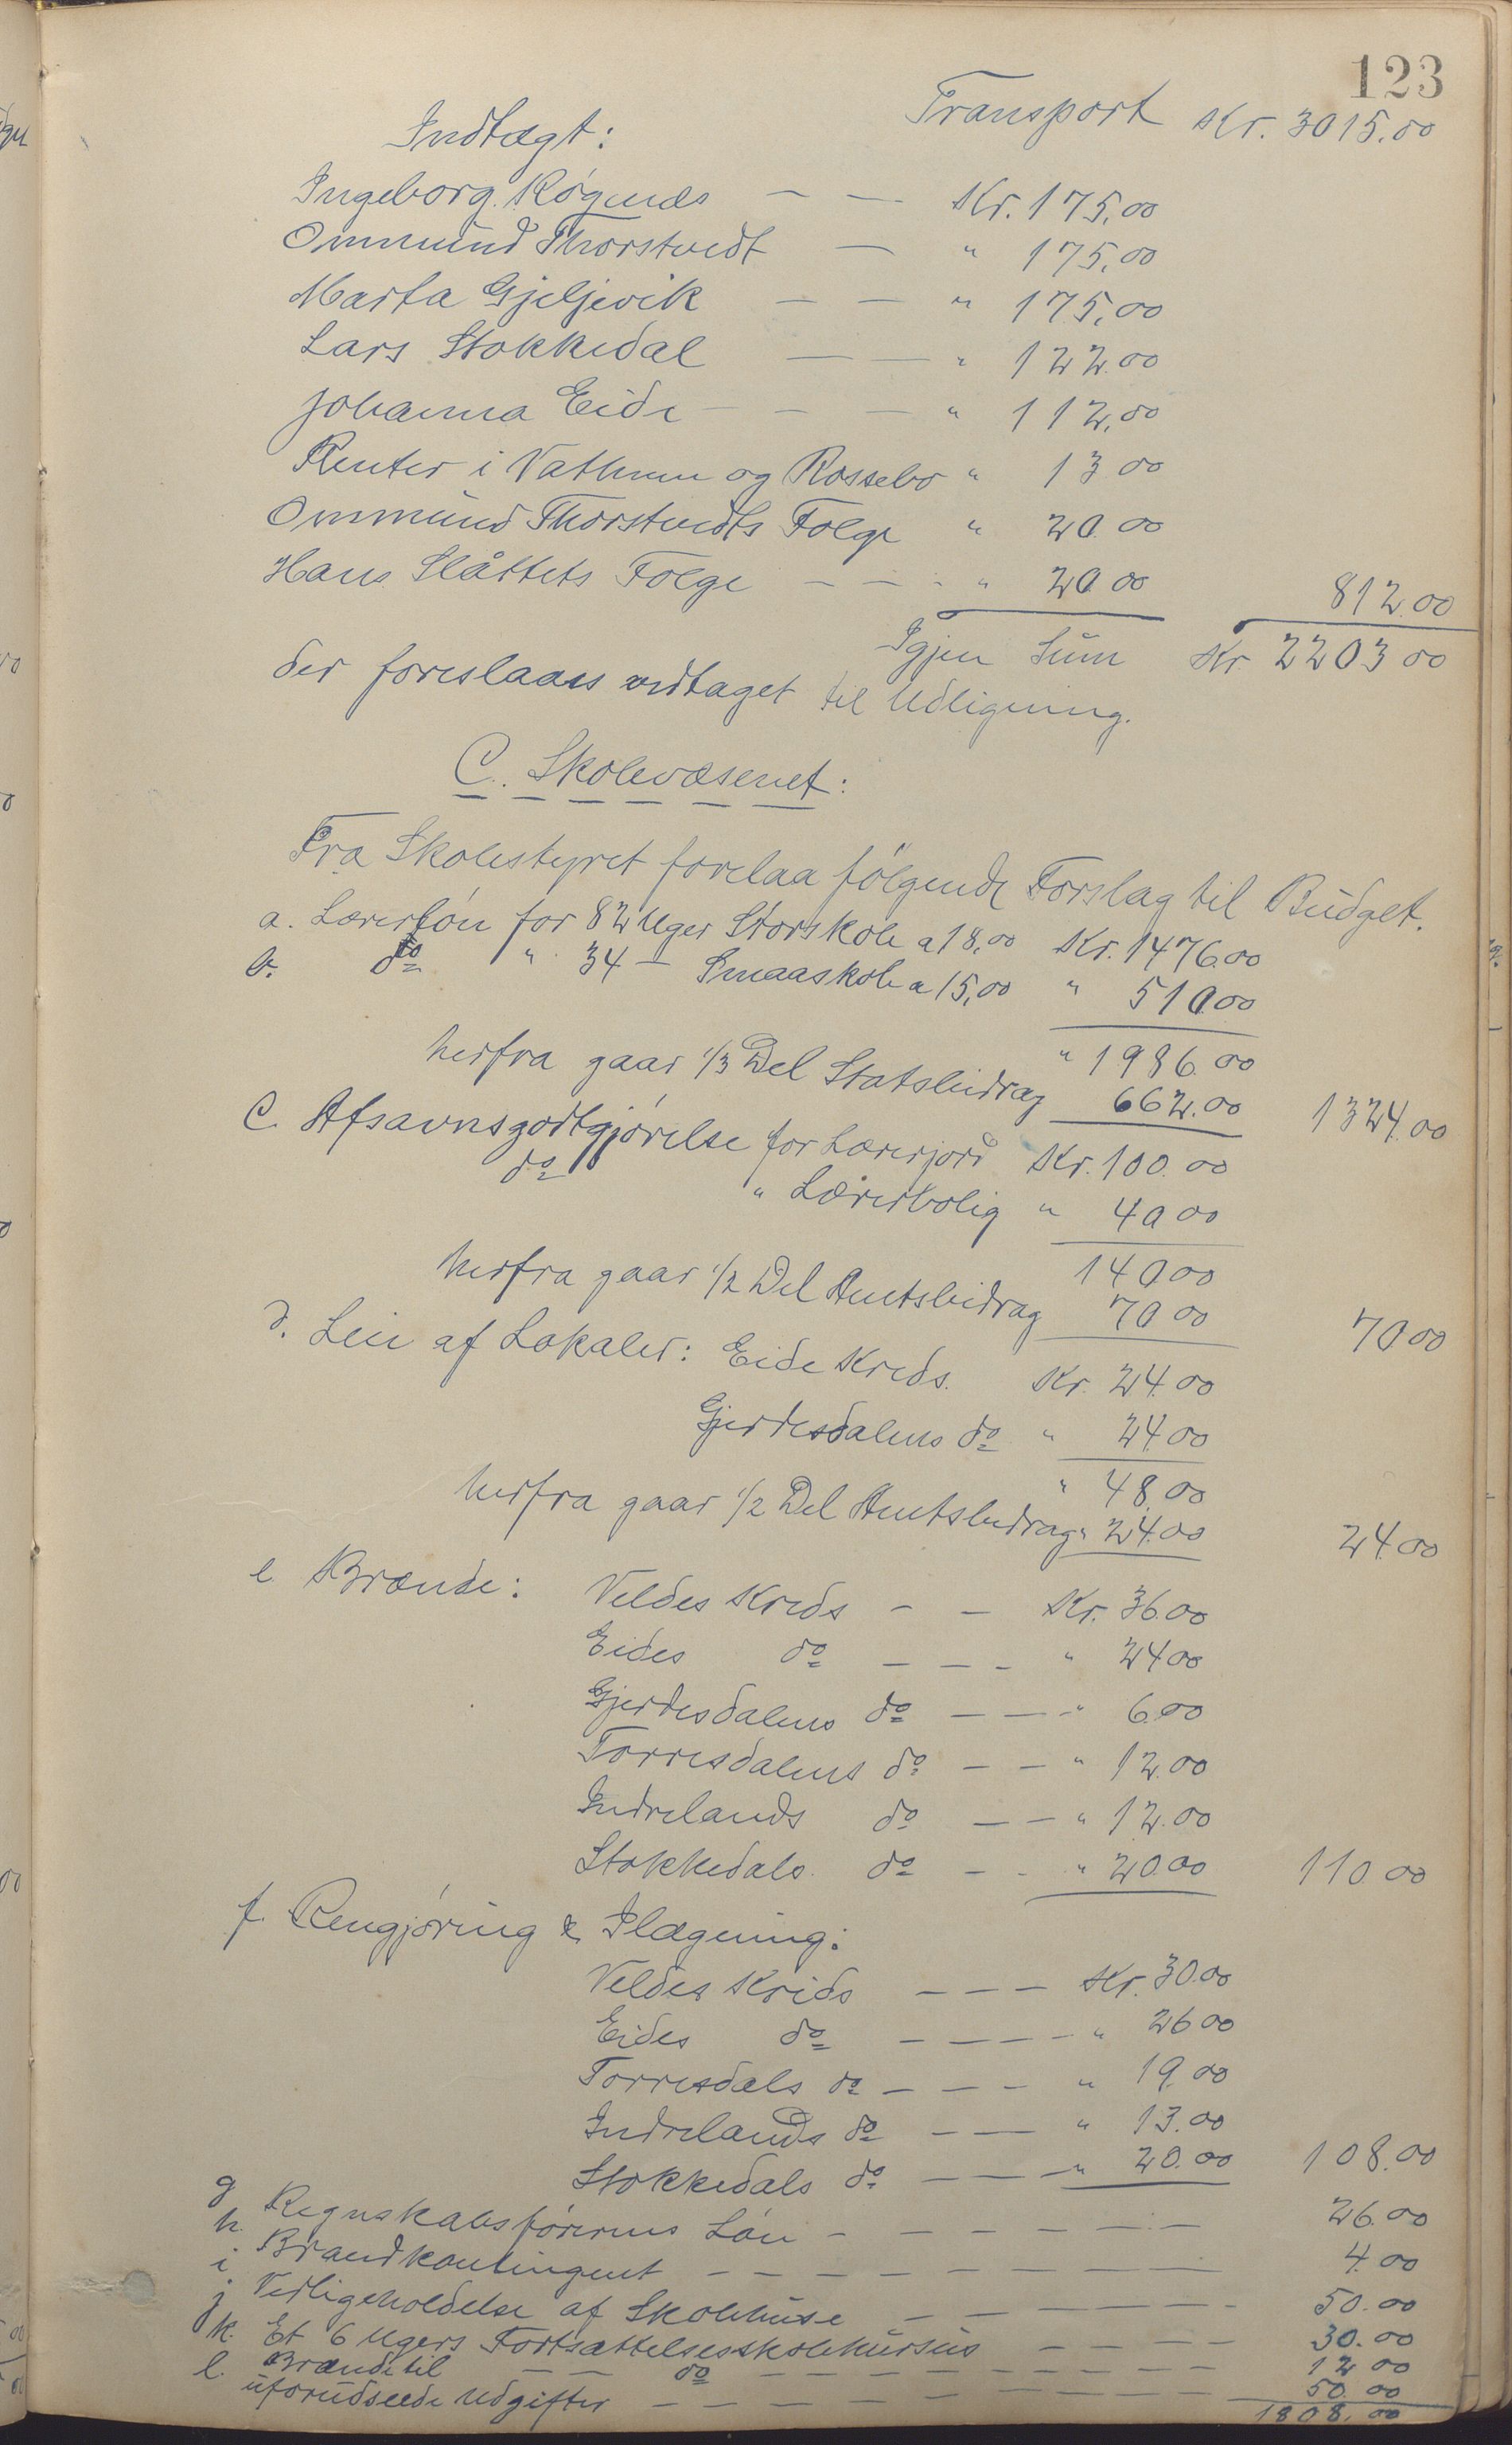 123
Transport Kr. 3015.00
Indtægt:
Ingeborg Røgenes — — Kr. 175,00
Ommund Thorstvedt — " 175,00
Marta Gjeljevik — — " 175,00
Lars Stokkedal — — " 122.00
Johanna Eide — — — " 112,00
Renter i Vathum og Rossebo " 13 00
Ommund Thorstvedts Følge " 20.00
Hans Slåttets Følge — — " 20.00 812.00
Igjen Sum Kr 2203 00
der foreslaaes vedtaget til Udligning.
C. Skolevæsenet:
Fra Skolestyret forelaa følgende Forslag til Budget.
a. Lærerløn for 82 Uger Storskole a 18,00 Kr. 1476.00
b. do " 34 — Smaaskole a 15,00 " 510.00
" 1986.00
herfra gaar 1/3 Del Statsbidrag 662.00 1324.00
C. Afsavnsgodtgjørelse for Lærerjord Kr. 100.00
do " Lærerbolig " 40 00
140 00
herfra gaar 1/2 Del Amtsbidrag 70 00 70 00
d. Leie af Lokaler: Eide Kreds. Kr. 24.00
Gjerdesdalens do " 24 00
" 48.00
herfra gaar 1/2 Del Amtsbidrag " 24.00 24.00
e Brænde: Veldes Kreds — — Kr. 36.00
Eides do — — — " 24 00
Gjerdesdalens do — — — " 6.00
Torresdalens do — — " 12.00
Indrelands do — — " 12.00
Stokkedals do — — " 20.00 110.00
f. Rengjøring & Ilægning:
Veldes Kreds — — — Kr. 30.00
Eides do — — — — " 26 00
Torresdals do — — — " 19.00
Indrelands do — — " 13.00
Stokkedals do — — — " 20.00 108.00
g Regnskabsførerens Løn — — — — — — 26.00
h. Brandkontingent — — — — — — — — 4.00
i Vedligeholdelse af Skolehuse — — — — — 50.00
j Et 6 Ugers Fortsættelsesskolekursus — — — — 30.00
k. Brænde til — — do — — — — — — — 12 00
l. uforudseede Udgifter — — — — — — — — 50.00
1808.00